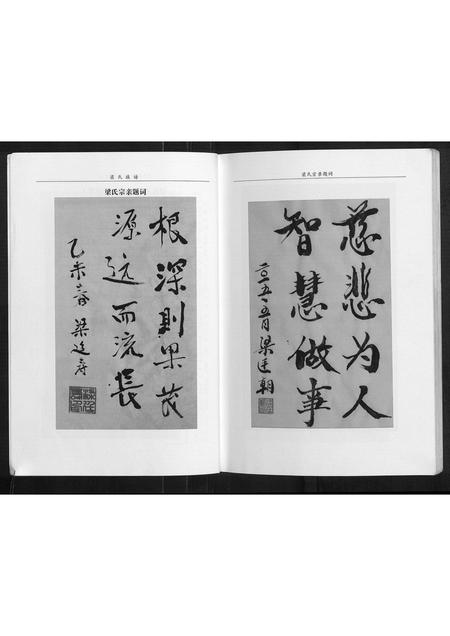 梁氏族谱
梁氏宗亲题词
根深则果茂
源远而流长
乙未春 梁廷
梁氏宗亲题词
慈悲为人
智慧做事
二〇一五·五月 梁廷朝